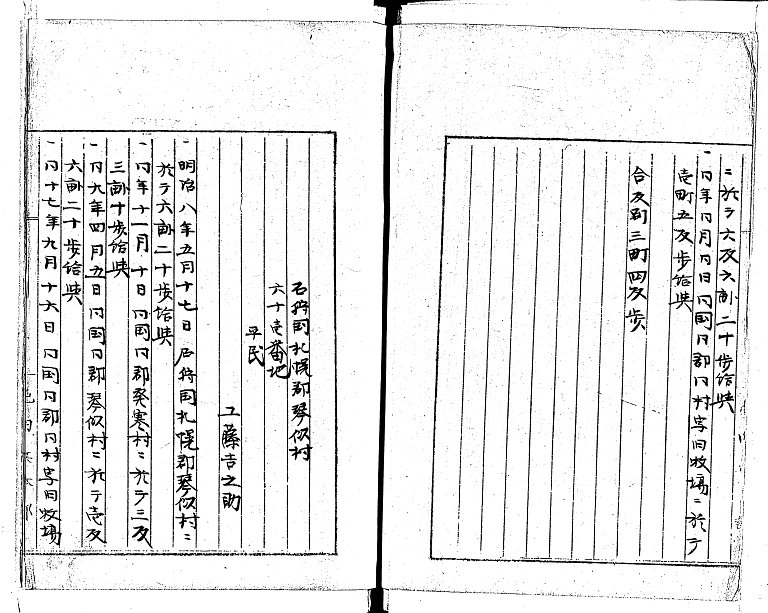 ニ於テ六反六畝二十歩給与
一同年同月同日同国同郡同村字旧牧場ニ於テ
壱町五反歩給与
合反別三町四反歩
石狩国札幌郡琴似村
六十壱番地
平民
工藤吉之助
一明治八年五月十七日石狩国札幌郡琴似村ニ
於テ六畝二十歩給与
一同年十一月十日同国同郡発寒村ニ於テ三反
三畝十歩給与
一同九年四月五日同国同郡琴似村ニ於テ壱反
六畝二十歩給与
一同十七年九月十六日同国同郡同村字旧牧場